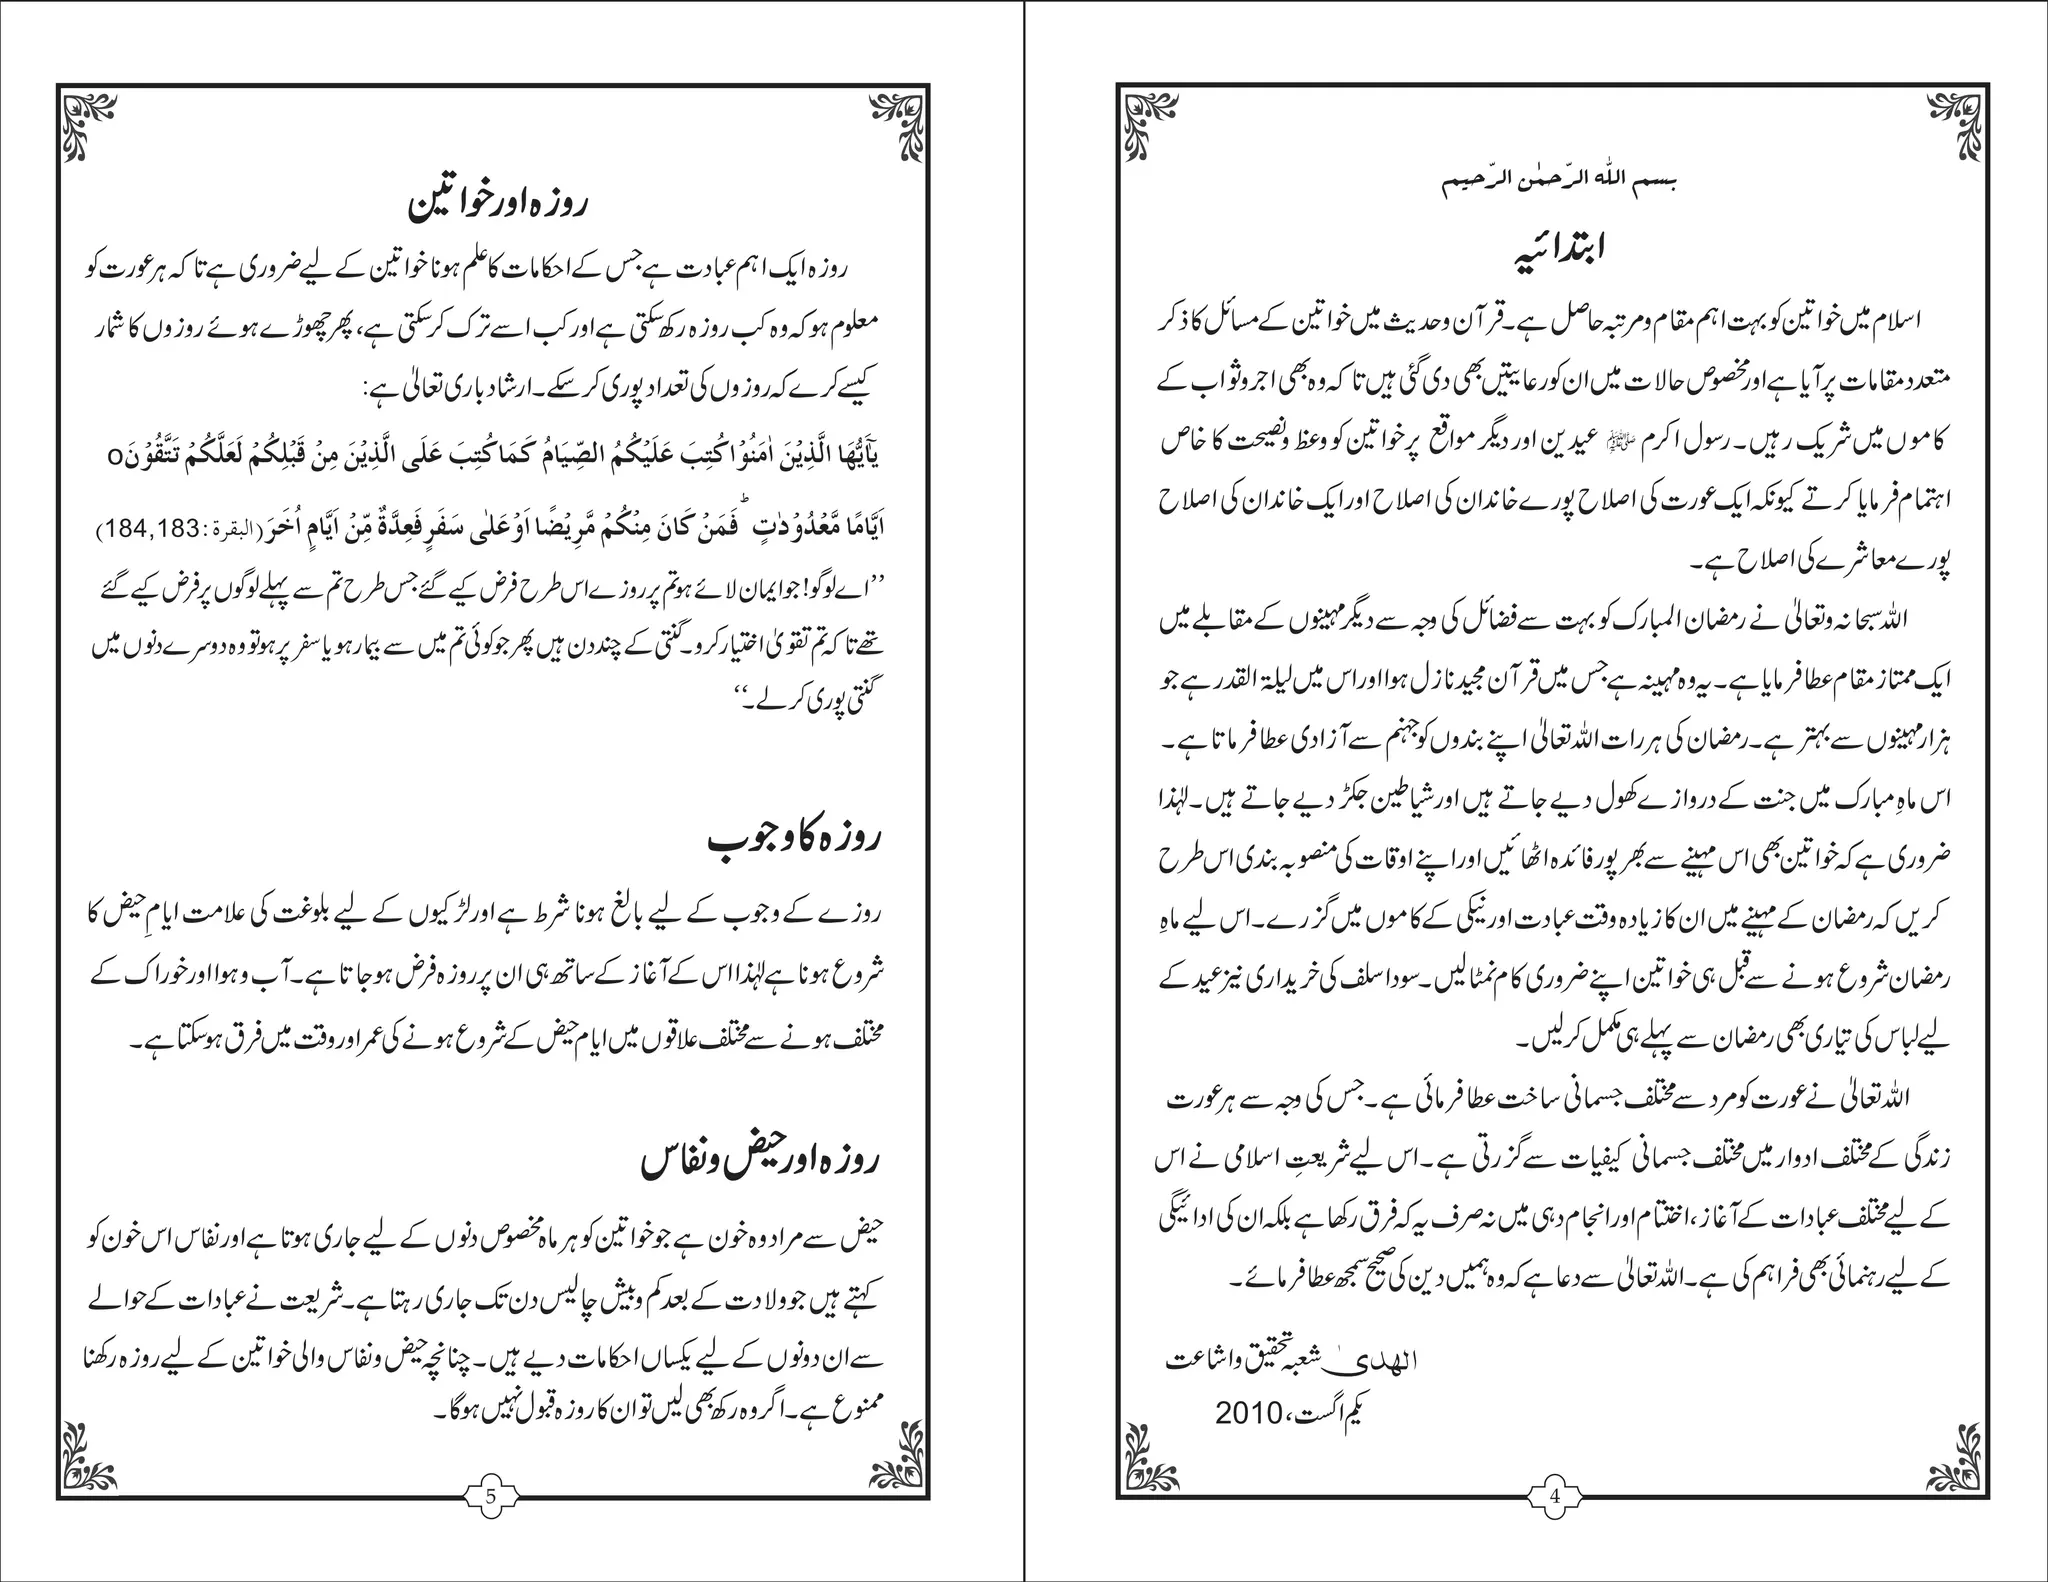 بسم اللہ الرّحمٰن الرّحیم
ابتدائیہ
اسلام میں خواتین کو بہت اہم مقام و مرتبہ حاصل ہے۔ قرآن و حدیث میں خواتین کے مسائل کا ذکر
متعدد مقامات پر آیا ہے اور مخصوص حالات میں ان کو رعایتیں بھی دی گئی ہیں تا کہ وہ بھی اجر و ثواب کے
کاموں میں شریک رہیں۔ رسول اکرم ﷺ عیدین اور دیگر مواقع پر خواتین کو وعظ و نصیحت کا خاص
اہتمام فرمایا کرتے کیونکہ ایک عورت کی اصلاح پورے خاندان کی اصلاح اور ایک خاندان کی اصلاح
پورے معاشرے کی اصلاح ہے۔
اللہ سبحانہ وتعالیٰ نے رمضان المبارک کو بہت سے فضائل کی وجہ سے دیگر مہینوں کے مقابلے میں
ایک ممتاز مقام عطا فرمایا ہے۔ یہ وہ مہینہ ہے جس میں قرآن مجید نازل ہوا اور اس میں لیلۃ القدر ہے جو
ہزار مہینوں سے بہتر ہے۔ رمضان کی ہر رات اللہ تعالیٰ اپنے بندوں کو جہنم سے آزادی عطا فرماتا ہے۔
اس ماہِ مبارک میں جنت کے دروازے کھول دیے جاتے ہیں اور شیاطین جکڑ دیے جاتے ہیں۔ لہٰذا
ضروری ہے کہ خواتین بھی اس مہینے سے بھرپور فائدہ اٹھائیں اور اپنے اوقات کی منصوبہ بندی اس طرح
کریں کہ رمضان کے مہینے میں ان کا زیادہ وقت عبادت اور نیکی کے کاموں میں گزرے۔ اس لیے ماہِ
رمضان شروع ہونے سے قبل ہی خواتین اپنے ضروری کام نمٹا لیں۔ سودا سلف کی خریداری نیز عید کے
لیے لباس کی تیاری بھی رمضان سے پہلے ہی مکمل کر لیں۔
اللہ تعالیٰ نے عورت کو مرد سے مختلف جسمانی ساخت عطا فرمائی ہے۔ جس کی وجہ سے ہر عورت
زندگی کے مختلف ادوار میں مختلف جسمانی کیفیات سے گزرتی ہے۔ اس لیے شریعتِ اسلامی نے اس
کے لیے مختلف عبادات کے آغاز، اختتام اور انجام دہی میں نہ صرف یہ کہ فرق رکھا ہے بلکہ ان کی ادائیگی
کے لیے رہنمائی بھی فراہم کی ہے۔ اللہ تعالیٰ سے دعا ہے کہ وہ ہمیں دین کی صحیح سمجھ عطا فرمائے۔
الھدیٰ شعبہ تحقیق و اشاعت
یکم اگست، 2010
4
روزہ اور خواتین
روزہ ایک اہم عبادت ہے جس کے احکامات کا علم ہونا خواتین کے لیے ضروری ہے تا کہ ہر عورت کو
معلوم ہو کہ وہ کب روزہ رکھ سکتی ہے اور کب اسے ترک کر سکتی ہے، پھر چھوڑے ہوئے روزوں کا شمار
کیسے کرے کہ روزوں کی تعداد پوری کر سکے۔ ارشاد باری تعالیٰ ہے:
یٰۤاَیُّهَا الَّذِیۡنَ اٰمَنُوۡا كُتِبَ عَلَیۡكُمُ الصِّیَامُ كَمَا كُتِبَ عَلَی الَّذِیۡنَ مِنۡ قَبۡلِكُمۡ لَعَلَّكُمۡ تَتَّقُوۡنَo
اَیَّامًا مَّعۡدُوۡدٰتٍ ؕ فَمَنۡ كَانَ مِنۡكُمۡ مَّرِیۡضًا اَوۡ عَلٰی سَفَرٍ فَعِدَّةٌ مِّنۡ اَیَّامٍ اُخَرَ (البقرة: 184,183)
’’اے لوگو! جو ایمان لائے ہو تم پر روزے اس طرح فرض کیے گئے جس طرح تم سے پہلے لوگوں پر فرض کیے گئے
تھے تا کہ تم تقویٰ اختیار کرو۔ گنتی کے چند دن ہیں پھر جو کوئی تم میں سے بیمار ہو یا سفر پر ہو تو وہ دوسرے دنوں میں
گنتی پوری کر لے۔‘‘
روزہ کا وجوب
روزے کے وجوب کے لیے بالغ ہونا شرط ہے اور لڑکیوں کے لیے بلوغت کی علامت ایامِ حیض کا
شروع ہونا ہے لہٰذا اس کے آغاز کے ساتھ ہی ان پر روزہ فرض ہو جاتا ہے۔ آب و ہوا اور خوراک کے
مختلف ہونے سے مختلف علاقوں میں ایام حیض کے شروع ہونے کی عمر اور وقت میں فرق ہو سکتا ہے۔
روزہ اور حیض و نفاس
حیض سے مراد وہ خون ہے جو خواتین کو ہر ماہ مخصوص دنوں کے لیے جاری ہوتا ہے اور نفاس اس خون کو
کہتے ہیں جو ولادت کے بعد کم و بیش چالیس دن تک جاری رہتا ہے۔ شریعت نے عبادات کے حوالے
سے ان دونوں کے لیے یکساں احکامات دیے ہیں۔ چنانچہ حیض و نفاس والی خواتین کے لیے روزہ رکھنا
ممنوع ہے۔ اگر وہ رکھ بھی لیں تو ان کا روزہ قبول نہیں ہوگا۔
5